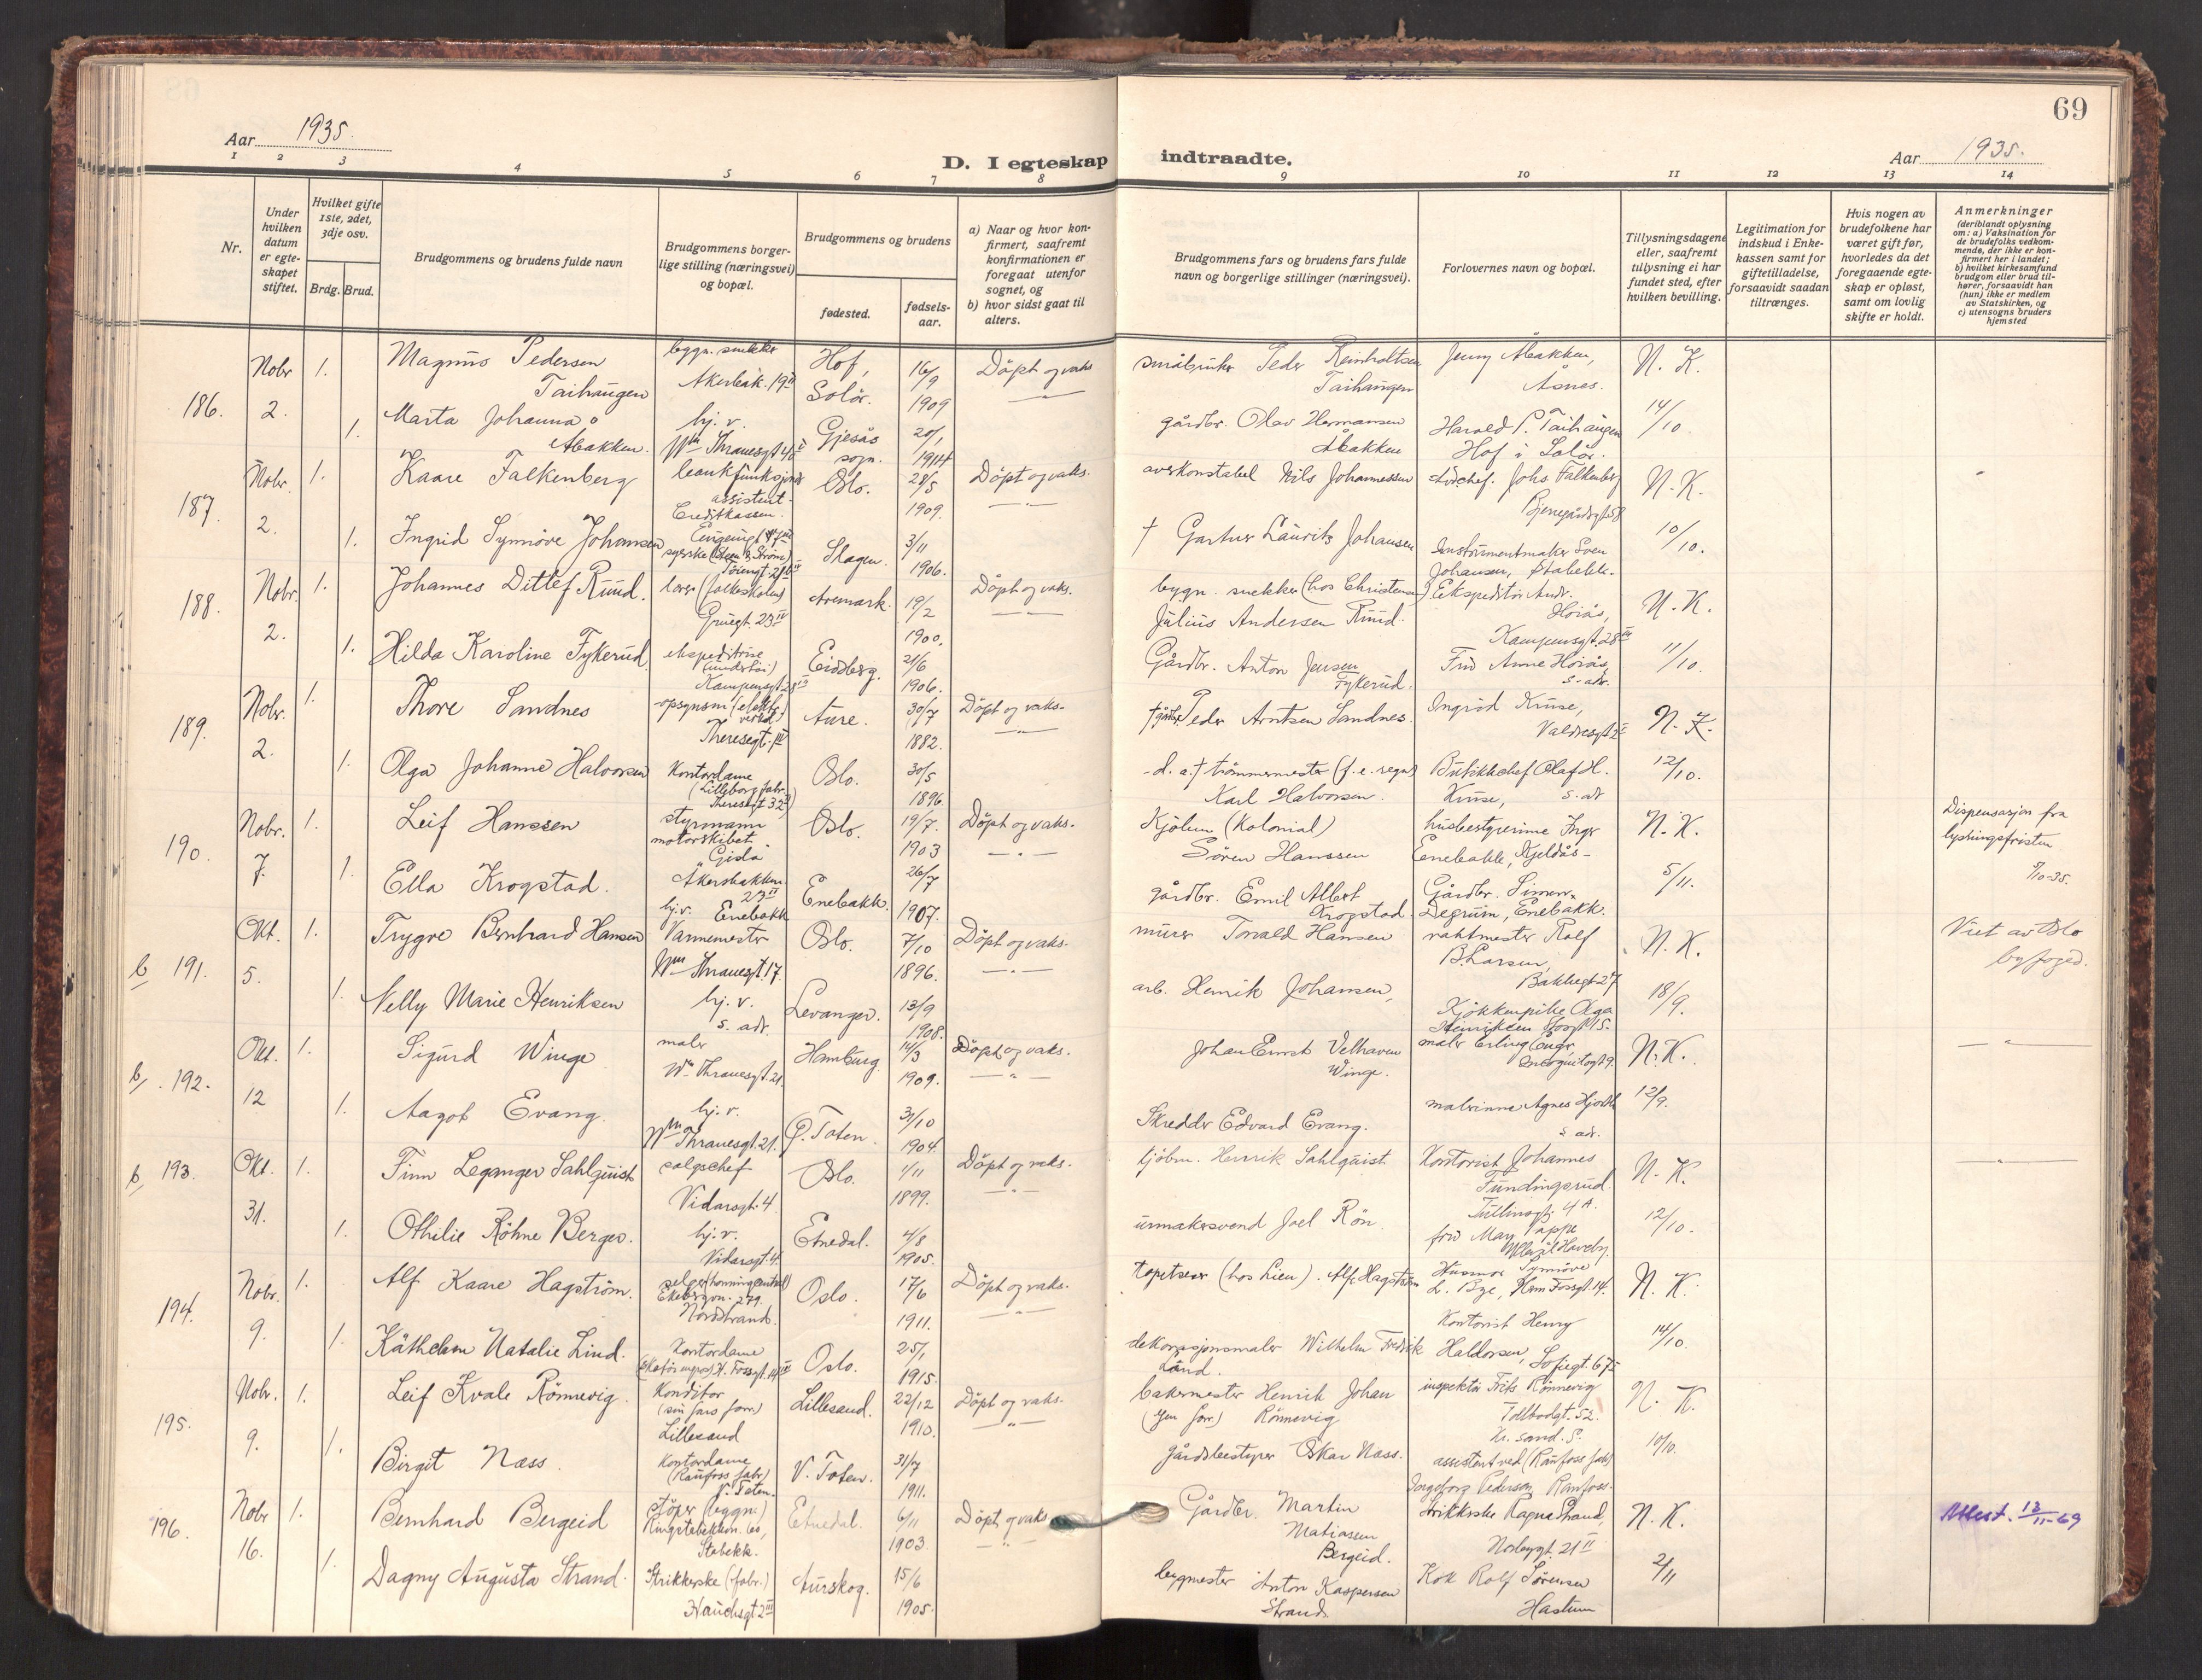 69
Aar 1935.
D. I egteskap indtraadte.
Aar 1935.
1 2 3 4 5 6 7 8 9 10 11 12 13 14
Nr.
Under
hvilken
datum
er egte-
skapet
stiftet.
Hvilket gifte
1ste, 2det,
3dje osv.
Brdg. Brud.
Brudgommens og brudens fulde navn
Brudgommens borger-
lige stilling (næringsvei)
og bopæl.
Brudgommens og brudens
fødested.
fødsels-
aar.
a) Naar og hvor kon-
firmert, saafremt
konfirmationen er
foregaat utenfor
sognet, og
b) hvor sidst gaat til
alters.
Brudgommens fars og brudens fars fulde
navn og borgerlige stillinger (næringsvei).
Forlovernes navn og bopæl.
Tillysningsdagene
eller, saafremt
tillysning ei har
fundet sted, efter
hvilken bevilling.
Legitimation for
indskud i Enke-
kassen samt for
giftetilladelse,
forsaavidt saadan
tiltrænges.
Hvis nogen av
brudefolkene har
været gift før,
hvorledes da det
foregaaende egte-
skap er opløst,
samt om lovlig
skifte er holdt.
Anmerkninger
(deriblandt oplysning
om: a) Vaksination for
de brudefolks vedkom-
mende, der ikke er kon-
firmert her i landet;
b) hvilket kirkesamfund
brudgom eller brud til-
hører, forsaavidt han
(hun) ikke er medlem
av Statskirken, og
c) utensogns bruders
hjemsted
186. Nobr 2. 1. Magnus Pedersen
Taihaugen
bygn. snekker
Akerbak. 19 II
Hof,
Solör.
16/9
1909
Döpt og vaks
småbruker Peder Reinholtsen
Taihaugen
Jenny Åbakken,
Åsnes.
N. K.
1. Marta Johanna
Åbakken.
hj. v.
Wm Thranesgt 42 II
Gjesås
sogn.
20/1
1914
gårdbr. Olav Hermansen
Åbakken
Harald P. Taihaugen
Hof i Solör.
14/10.
187. Nobr. 2. 1. Kaare Falkenberg
bankfunksjonær
assistent
Creditkassen.
Oslo.
28/5
1909.
Döpt og vaks.
overkonstabel Nils Johannessen
Johs Falkenberg
Bjerregårdsgt 58
N. K.
1. Ingrid Synnöve Johansen
syerske (Steen & Ström)
Töiengt 28
Skagen.
3/11
1906.
† Gartner Laurits Johansen
Instrumentmaker Sven
Johansen, Stabekk.
10/10.
188. Nobr. 2. 1. Johannes Ditlef Ruud.
lærer (folkeskolen)
Gruegt. 23 IV
Aremark.
19/2
1900.
Döpt og vaks.
bygn. snekker (hos Christensen)
Julius Andersen Ruud.
Ekspeditör Andr.
Höiås,
Kampensgt. 28 III
N. K.
1. Hilda Karoline Fykerud
ekspeditrise
Kampensgt 28
Eidsberg.
21/6
1906.
Gårdbr. Anton Jensen
Fykerud.
Fru Anne Höiås,
s. adr.
11/10.
189. Nobr. 2. 1. Thore Sandnes
opsynsm (elektr.
verk)
Theresegt.
Aure.
30/7
1882.
Döpt og vaks.
† gårdbr. Peder Arntsen Sandnes.
Ingrid Kruse,
Valdresgt 2
N. K.
1. Olga Johanne Halvorsen
Kontordame
(Lilleborg fabr.
Theresegt 32
Oslo.
30/5
1896.
d. a. † trömmermester
Karl Halvorsen.
Butikkchef Olaf H.
Kruse, s. adr
12/10.
190. Nobr. 7. 1. Leif Hanssen
styrmann
motorskibet
"Gisla"
Akersbakken
23 II
Oslo.
19/7.
1903
Döpt og vaks.
Kjöbm (Kolonial)
Sören Hanssen
husbestyrerinne Inger
Enebakk, Kjeldås
N. K.
Dispensasjon fra
lysningsfristen
5/10-35.
1. Ella Krogstad.
hj. v. Enebakk
Enebakk.
26/7
1907.
gårdbr. Emil Albert
Krogstad
Gårdbr. Simen
Degrum, Enebakk.
5/11.
b 191. Okt. 5. 1. Trygve Bernhard Hansen
Varmemester
Wm Thranesgt. 17.
Oslo.
7/10
1896.
Döpt og vaks.
murer Torvald Hansen
vaktmester Rolf
B. Larsen,
Bakkegt 27
N. K.
Viet av Oslo
byfoged.
1. Nelly Marie Henriksen
hj. v.
s. adr.
Levanger.
13/9
1908.
arb. Henrik Johansen,
Kjökkenpike Olga
Henriksen 15.
18/9.
b/ 192. Okt. 12 1. Sigurd Winge
maler
Wm Thranesgt. 21.
Hamburg
14/3
1909.
Döpt og vaks.
Johan Ernst Velhaven
Winge.
maler Erling Enger,
N. K.
1. Aagot Evang.
hj. v.
Wm Thranesgt. 21.
Ö. Toten.
31/10
1904.
Skredder Edvard Evang.
malerinne Agnes Hjorth
s. adr.
12/9.
b/ 193. Okt. 31. 1. Finn Leganger Sahlquist
salgschef
Vidarsgt. 4
Oslo.
1/11
1899.
Döpt og vaks.
kjöbm. Henrik Sahlquist
Kontorist Johannes
Fundingsrud
Tullinsgt. 4 A.
N. K.
1. Othilie Röhne Berger.
hj. v.
Vidarsgt. 4.
Etnedal.
4/8
1905.
urmakersvend Joel Rön.
fru Mary Pappe
Ullevål Haveby.
12/10.
194. Nobr. 9. 1. Alf Kaare Hagström.
Ekebergvn. 279
Nordstrand.
Oslo.
17/6
1911.
Döpt og vaks.
tapetserer (hos Lien). Alf Hagström
Husmor Synnöve
L. Bye, Herm Fossgt. 14.
N. K.
1. Käthchen Natalie Lind.
Kontordame
H. Fossgt. 14 III
Oslo.
25/1
1915.
dekorasjonsmaler Wilhelm Fredrik
Lind.
Kontorist Henry
Haldorsen, Sofiegt. 67 I
14/10.
195. Nobr. 9. 1. Leif Kvale Rönnevig
Konditor
(sin fars forr.)
Lillesand
Lillesand.
22/12
1910.
Döpt og vaks.
bakermester Henrik Johan
(egen forr.) Rönnevig
inspektör Frits Rönnevig
Tollbodgt. 52.
Kr. sand. S.
N. K.
1. Birgit Næss.
Kontordame
(Raufoss fabr)
V. Toten.
V. Toten.
31/7
1911.
gårdsbestyrer Oskar Næss.
assistent ved (Raufoss fabr)
Ingeborg Pedersen Raufoss.
10/10.
196. Nobr 16. 1. Bernhard Bergeid
stöper (bygn.)
Ringstabekkvn. 60,
Stabekk.
Etnedal.
6/11
1903.
Döpt og vaks
Gårdbr. Martin
Matiassen
Bergeid.
strikkerske Ragna Strand,
Norbygt. 21 II
N. K.
Attest. 13/11-69
1. Dagny Augusta Strand.
Strikkerske (fabr.)
Hauchsgt 2 III
Aurskog.
15/6
1905.
bygmester Anton Kaspersen
Strand
Kok Rolf Sörensen
Haslum
2/11